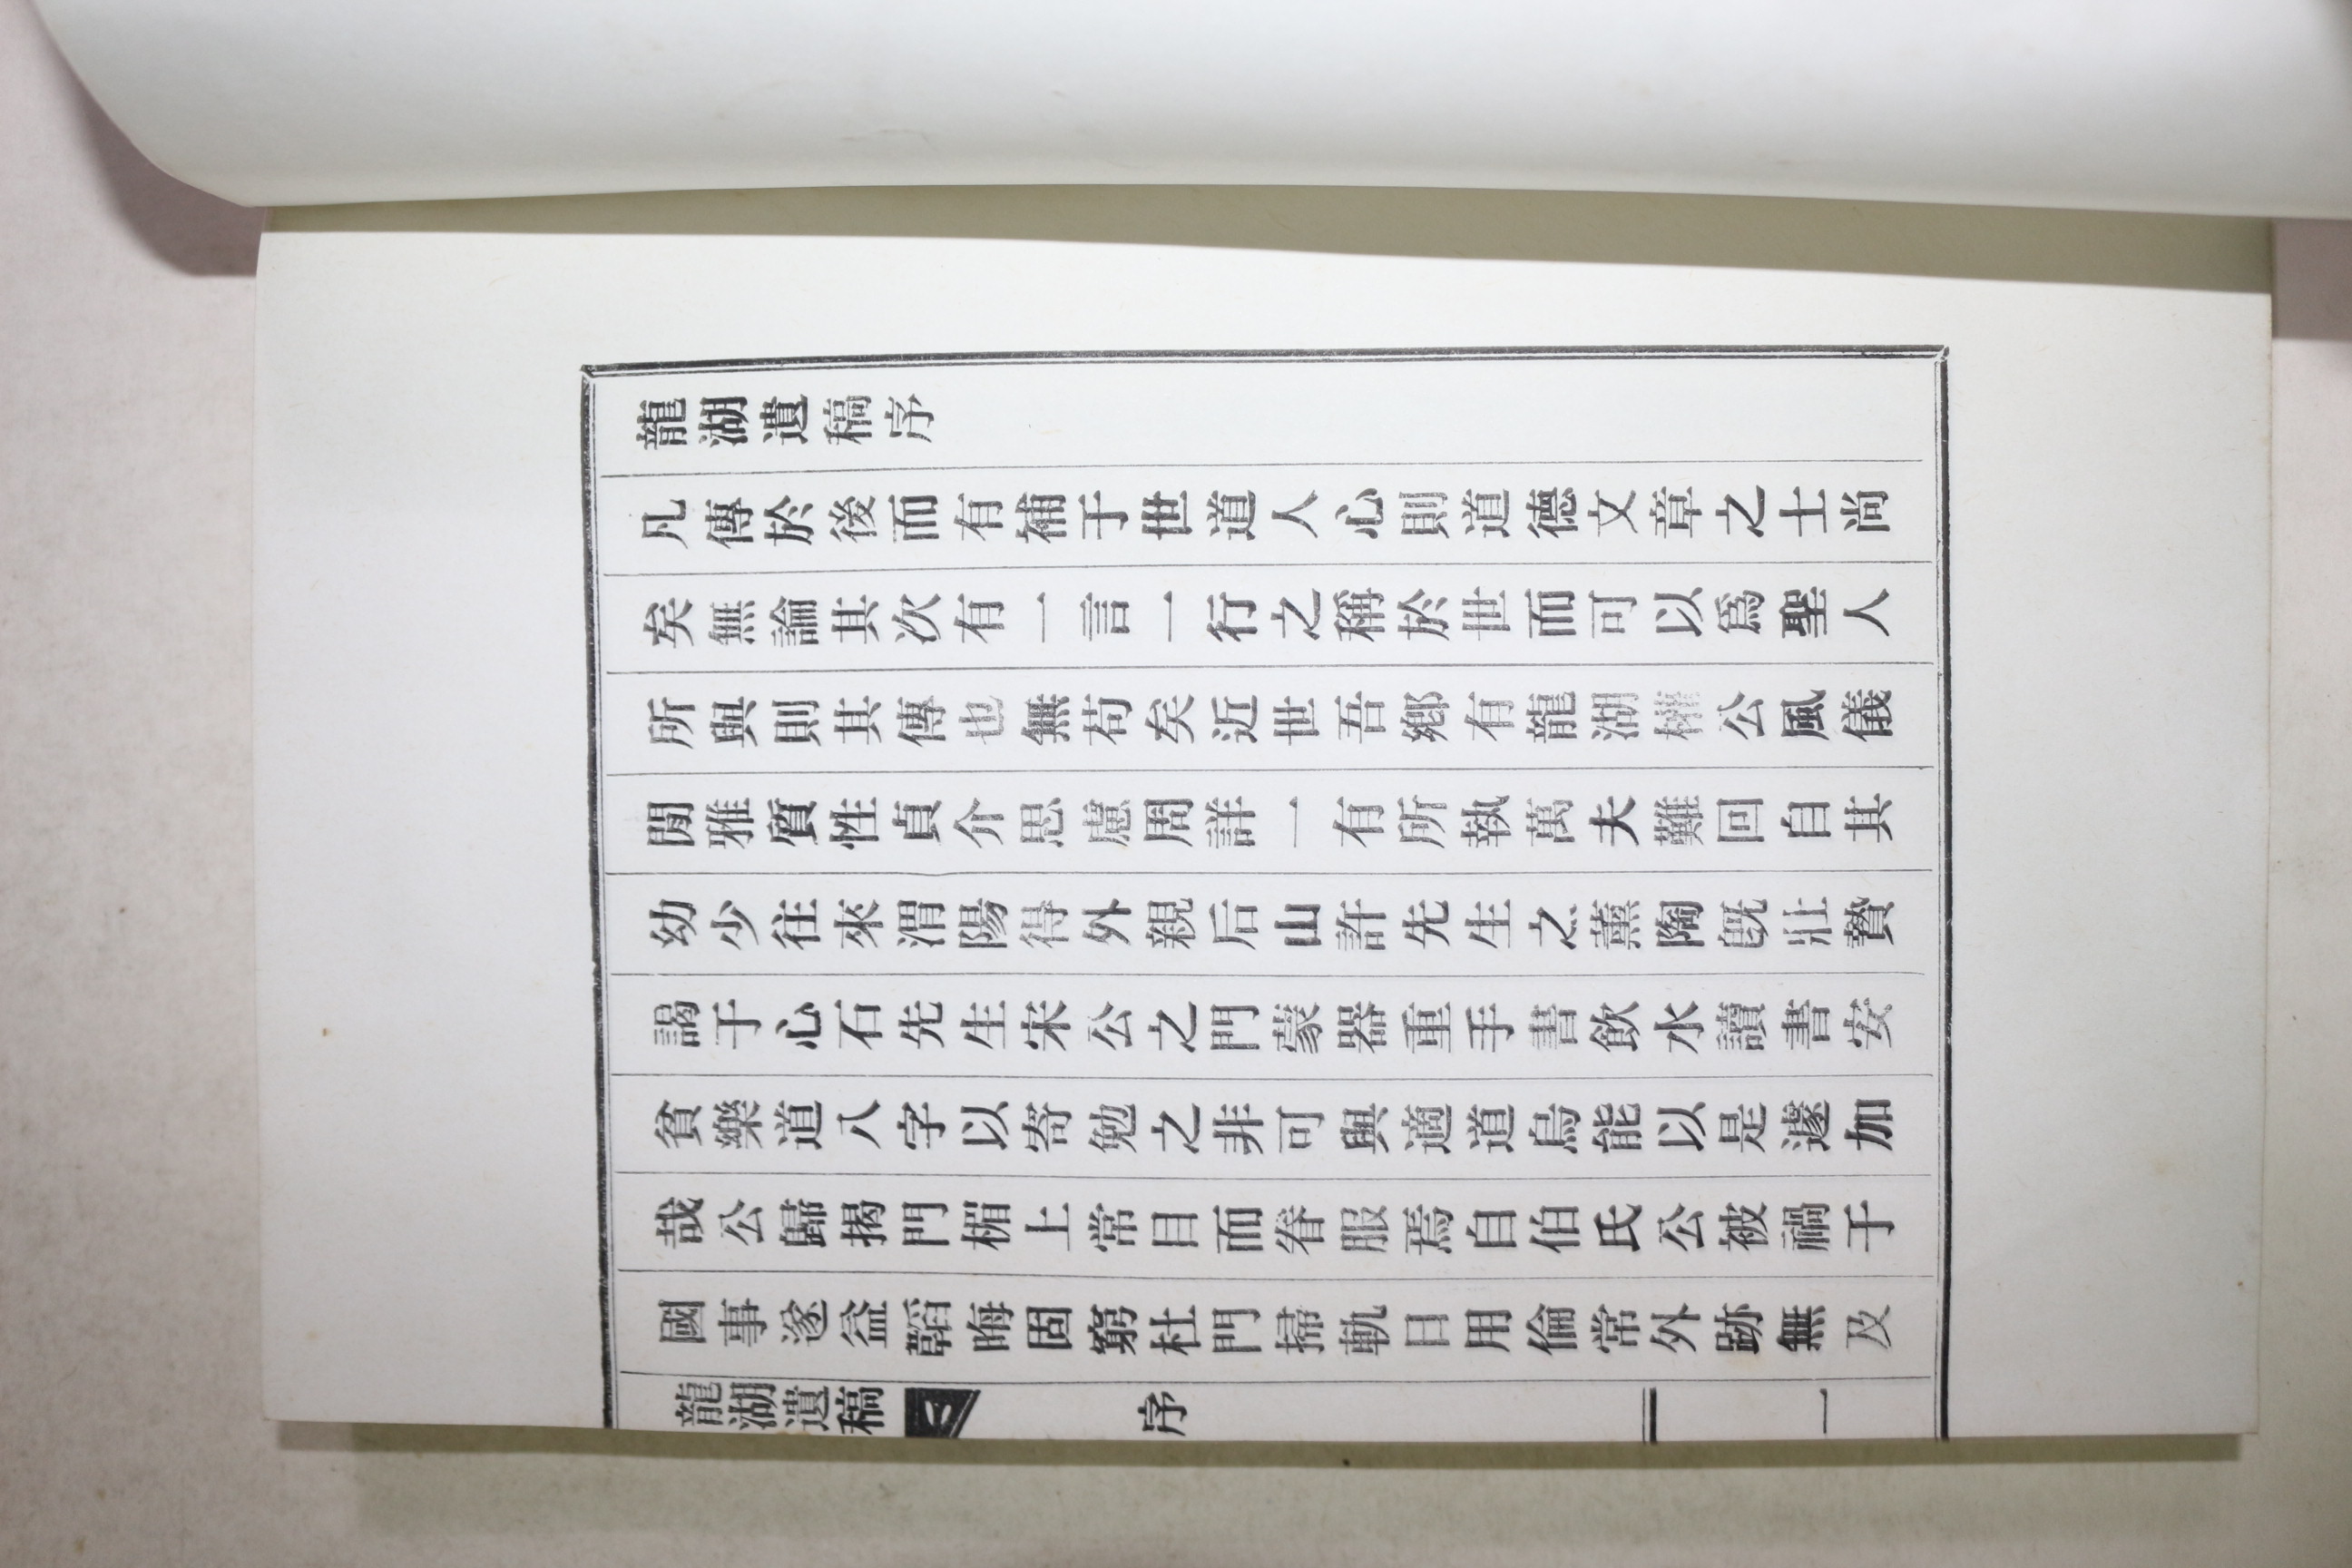 龍湖遺稿序
凡傳於後而有補于世道人心則道德文章之士尚
矣無論其次有一言一行之稱於世而可以爲聖人
所與則其傳也無苟矣近世吾鄕有龍湖權公風儀
閒雅質性貞介思慮周詳一有所執萬夫難回自其
幼少往來渭陽得外親后山許先生之薰陶旣壯贄
謁于心石先生宋公之門蒙器重手書飮水讀書安
貧樂道八字以寄勉之非可與適道烏能以是遽加
哉公歸揭門楣上常目而眷服焉自伯氏公被禍于
國事遂益韜晦固窮杜門掃軌日用倫常外跡無及
龍湖遺稿 序 一